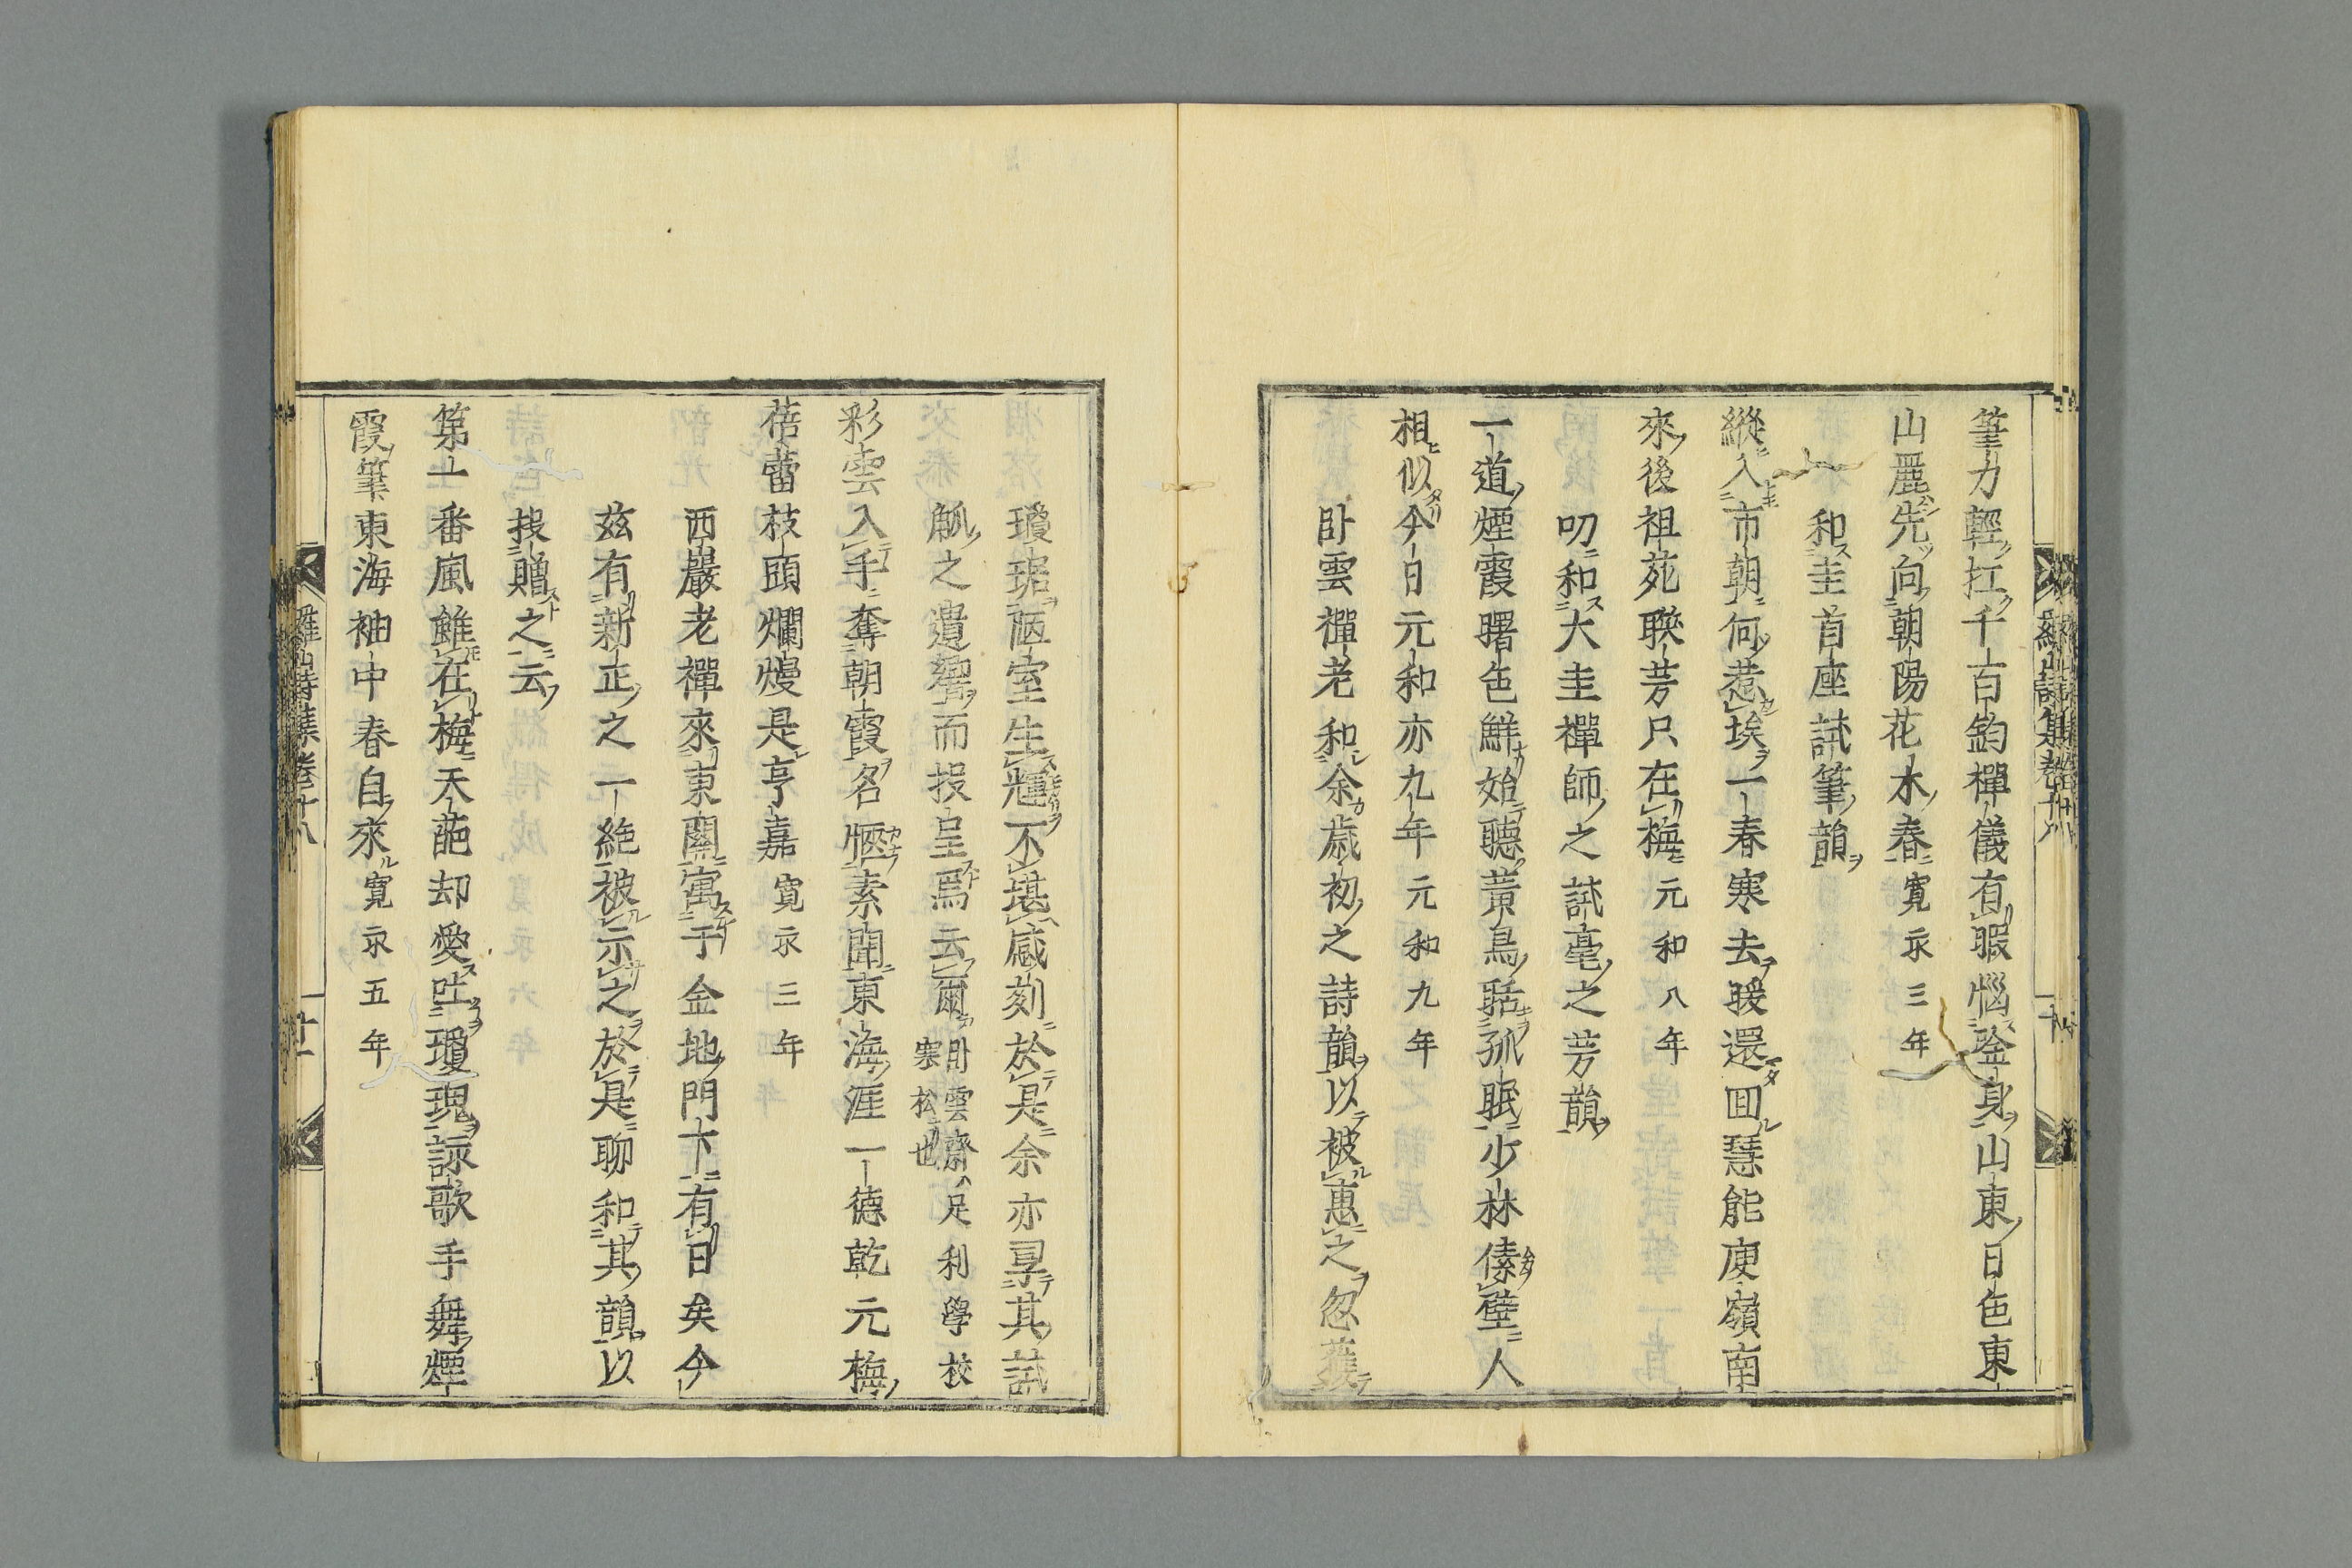 筆力輕扛千百鈞禪儀有暇惱唫身山東日色東
山麗先向朝陽花木春寛永三年
和圭首座試筆韻
縱入市朝何惹埃一春寒去暖還囬慧能庾嶺南
來後祖苑聯芳只在梅元和八年
叨和大圭禪師之試毫之芳韻
一道煙霞曙色鮮始聽黃鳥聒孤眠少林傣壁人
相似今日元和亦九年元和九年
卧雲禪老和余歳初之詩韻以被惠之忽蓬
瓊琚恆室生輝不堪感刻於是余亦尋其試
觚之遺響而投呈焉云爾卧雲齋足利學校
寒松也
彩雲入手奪朝霞名愜素聞東海涯一德乾元梅
蓓蕾枝頭爛熳是亨嘉寛永三年
西巖老禪來東關寓于金地門下有日矣今
玆有新正之一絶被示之於是聊和其韻以
投贈之云
第一番風雖在梅天葩却愛吐瓊瑰詠歌手舞煙
霞筆東海袖中春自來寛永五年
羅山詩集卷十八